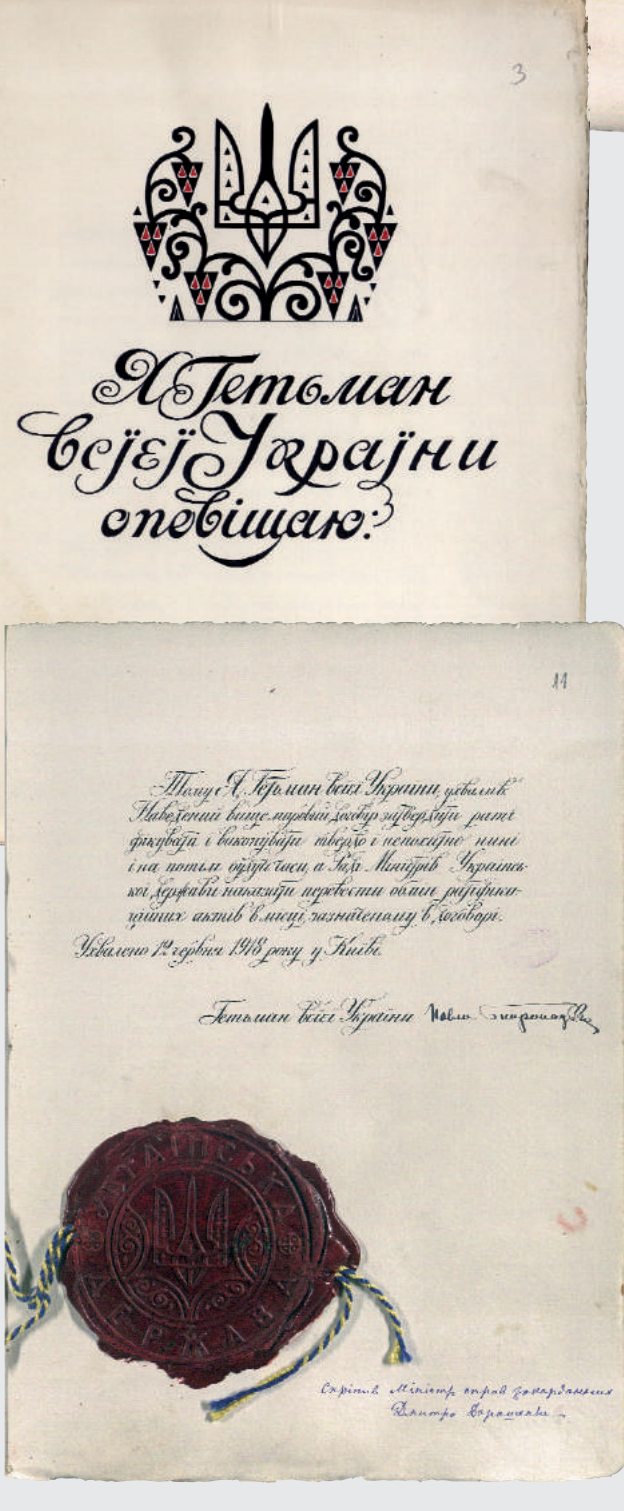 3
Я Гетьман
всјеј Украјни
оповіщаю:
11
Тому Я, Гетьман всієї України, ухвалив
Наведений вище мировий договір затвердити раті
фікувати і виконувати твердо і непохитно нині
і на потім будучі часи, а Раді Міністрів Українсь-
кої Держави наказати перевести обмін ратіфіка-
ційних актів в місці, зазначеному в договорі.
Ухвалено 12 червня 1918 року у Київі.
Гетьман всієї України Павло Скоропадський
УКРАЇНСЬКА
ДЕРЖАВА
Скріпив Міністр справ закордонних
Дмитро Дорошенко